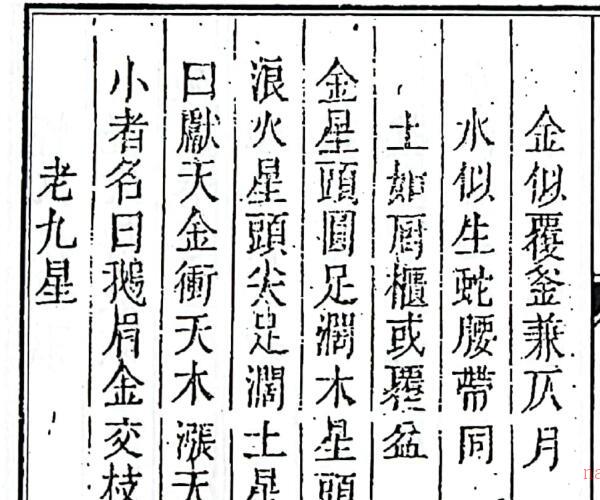 金似覆釜兼仄月
水似生蛇腰帶同
土如厨櫃或覆盆
金星頭圓足濶木星頭
浪火星頭尖足濶土星
曰獻天金衝天木漲天
小者名曰鵝眉金交枝
老九星
na